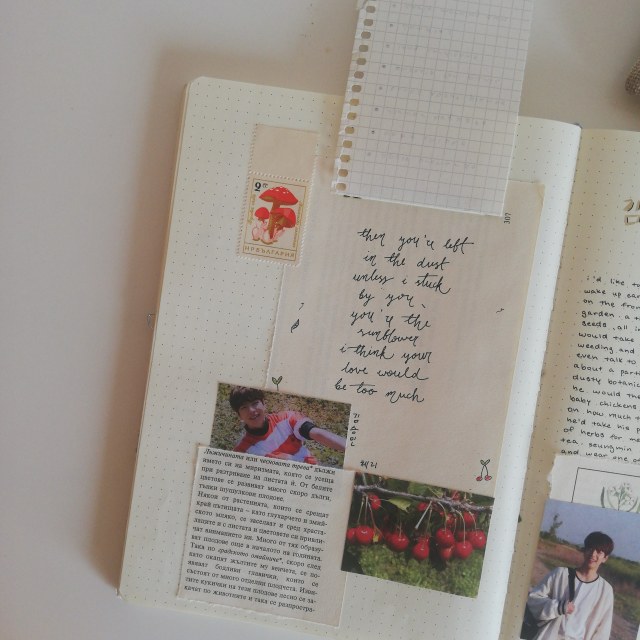 2
НРБЪЛГАРИЯ
107
then you're left
in the dust
unless i stuck
by you,
you're the
sunflower
i think your
love would
be too much
김승민
Лъжичината или чесновата трева* дължи
името си на миризмата, която се усеща
при разтриване на листата ѝ. От белите
цветове се развиват много скоро дълги,
тънки шушулковидни плодове.
Някои от растенията, които се срещат
край пътищата – като глухарчето и
ското мляко, се засяват и сред храста
лаците и с листата и цветовете си
вниманието ни. Много от тях образу-
ват плодове още в началото на годината.
Така по градското омайниче*, скоро след
като окапят жълтите му венчета, се по-
явяват бодливи главички, които се
състоят от много отделни плодчета. Извити-
те кукички на тези плодове лесно се за-
качат по животните и така се разпростра-
i'd like to
wake up ear
on the fron
garden. a
seeds. all
would take
weeding and
even talk to
about a pa
dusty botani
he would th
baby chickens
on how much
he'd take his
of herbs for
tea. seungmin
and wear